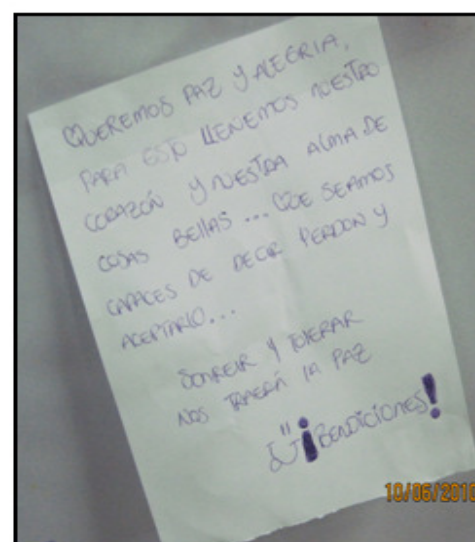 QUEREMOS PAZ Y ALEGRIA,
PARA ESTO LLENEMOS NUESTRO
CORAZÓN Y NUESTRA ALMA DE
COSAS BELLAS ... QUE SEAMOS
CAPACES DE DECIR PERDON Y
ACEPTARLO...
SONREIR Y TOLERAR
NOS TRAERÁ LA PAZ
¡BENDICIONES!
10/06/2010